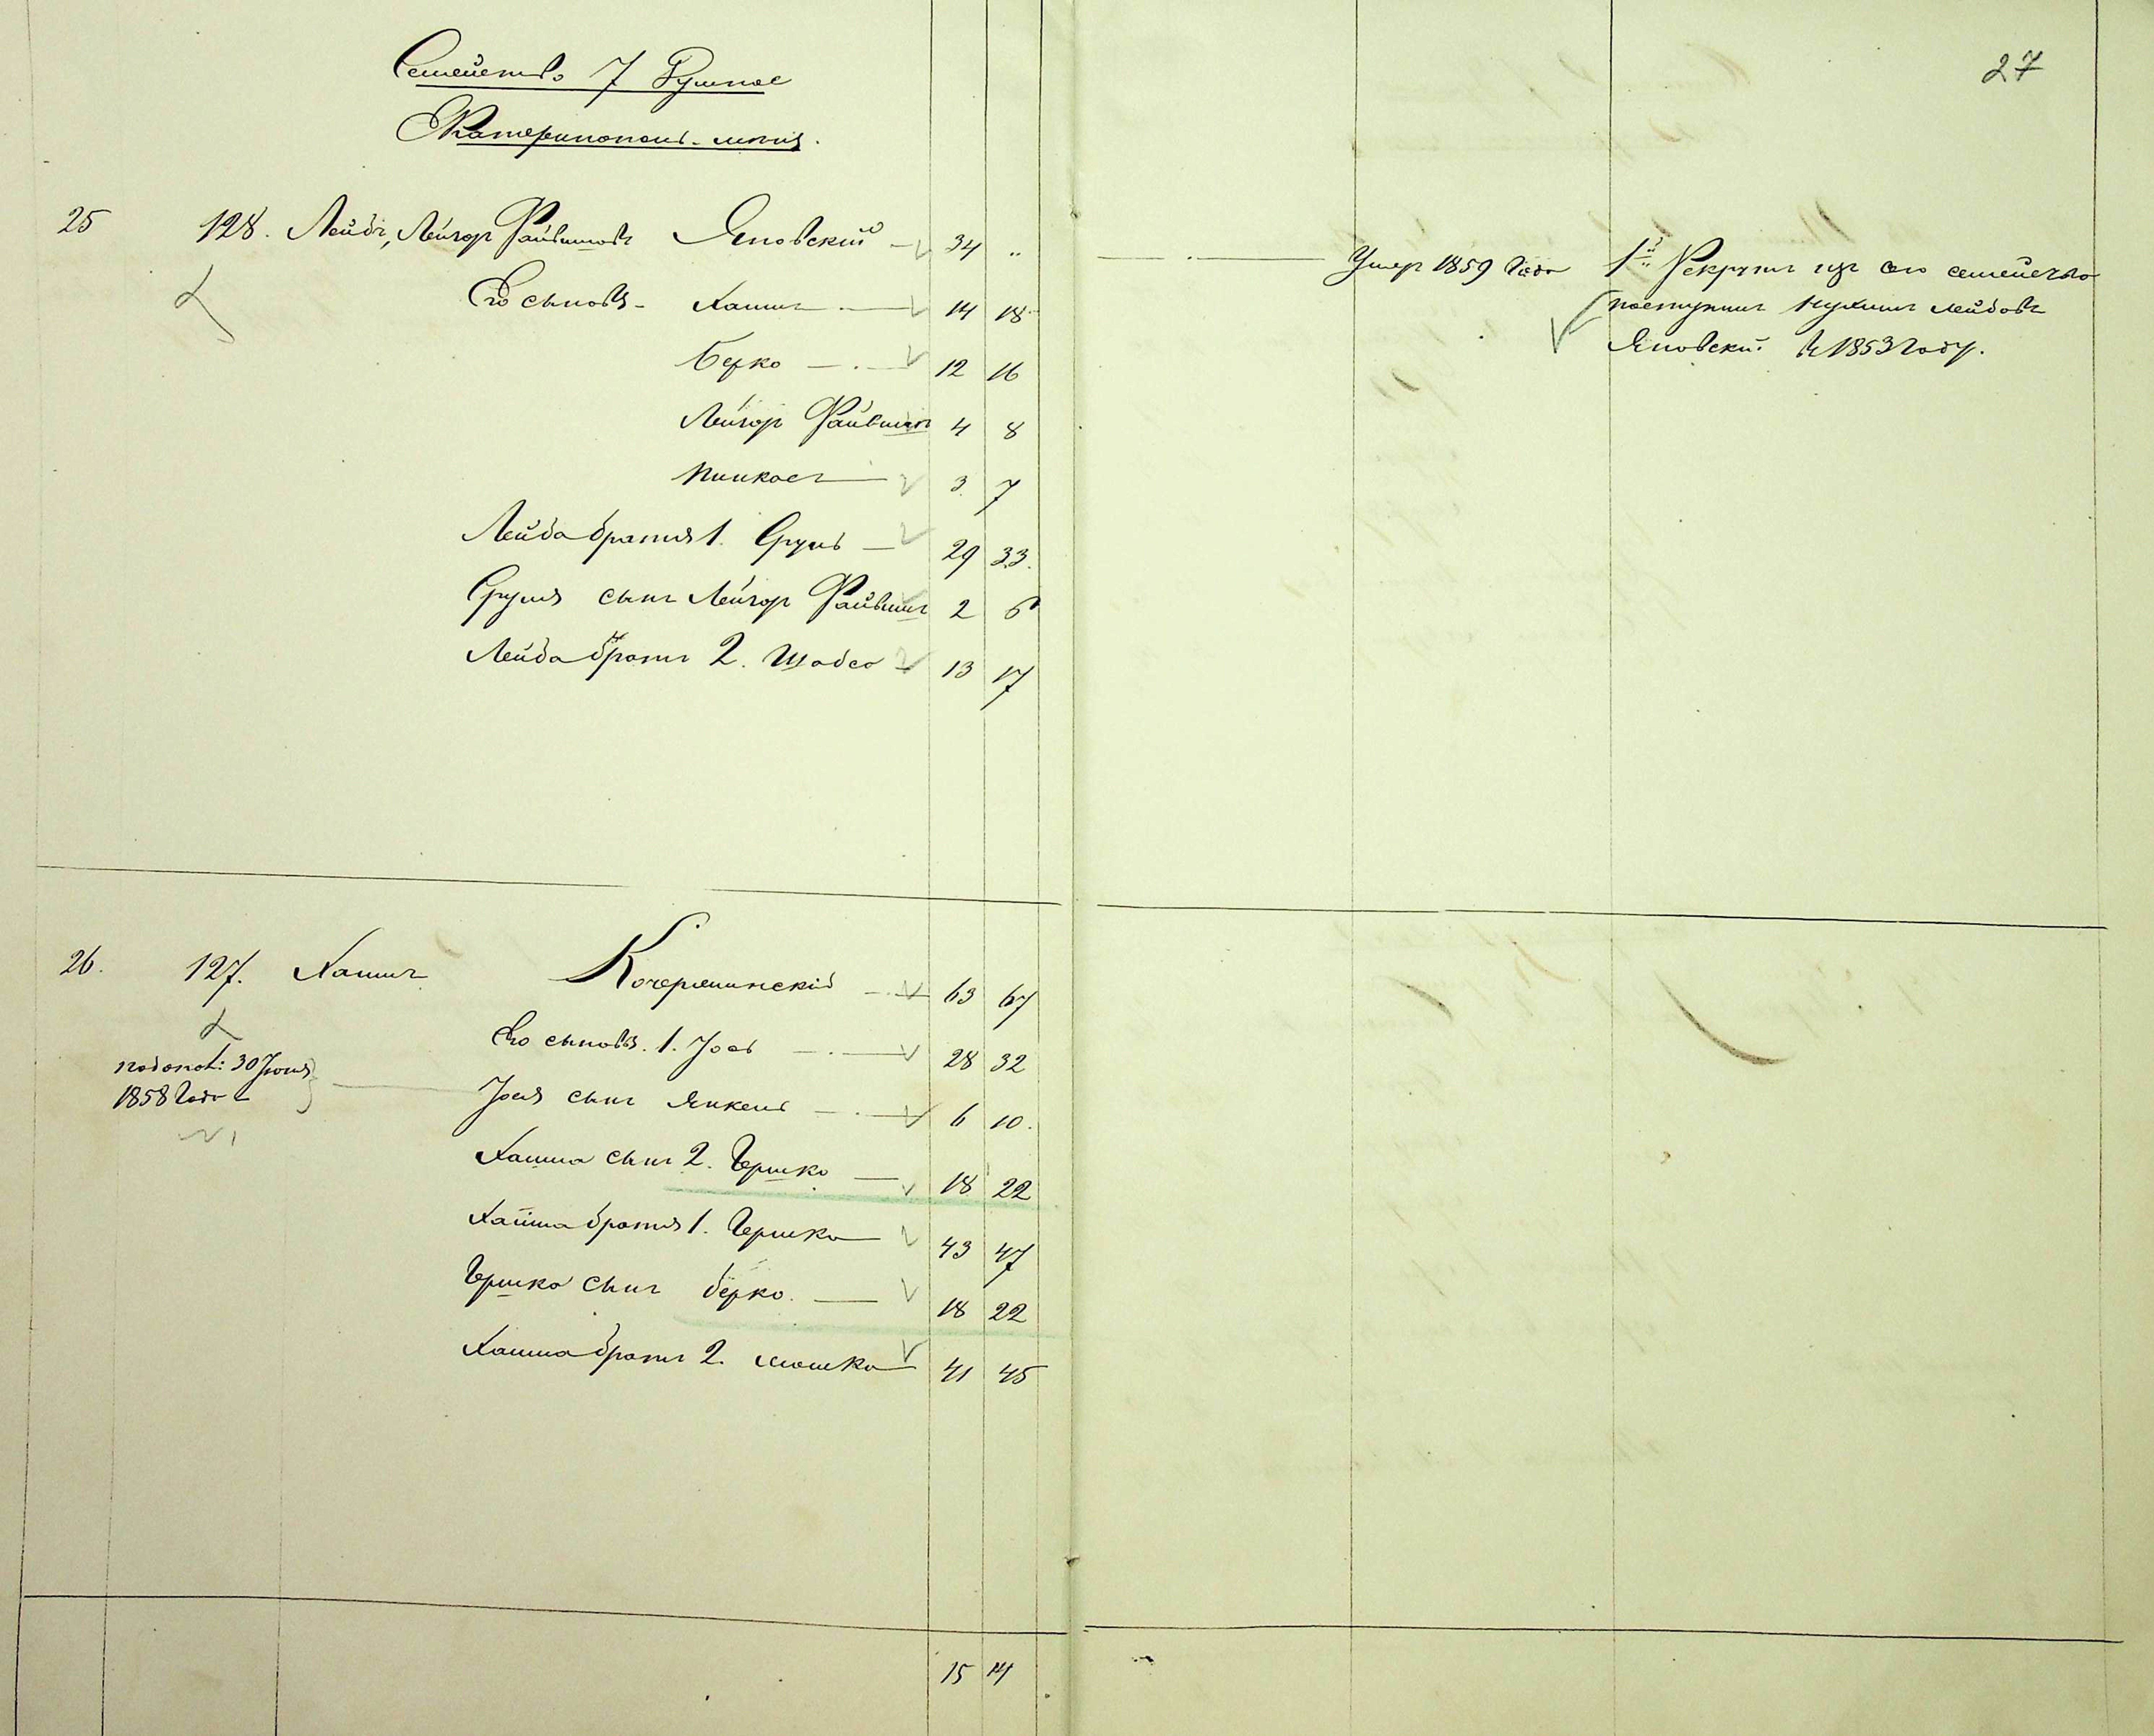 Семейство 7 Ручное
Екатеринополь-ский.
27
25 128. Лейбъ, Лейзор Файвишовъ Яновскій 34 „ Умер 1859 года 1й Рекрутъ изъ сего семейства
Его сыновя Хаимъ 14 18 поступилъ Нухимъ Лейбовъ
Яновский въ 1853 году.
Берко 12 16
Лейзор Файвишъ 4 8
Пинкасъ 3 7
Лейба братья 1. Сруль 29 33.
Сруля сынъ Лейзор Файвишъ 2 6
Лейба братъ 2. Шабса 13 17
26. 127. Хаимъ Кочержинскій 63 67
Его сыновя. 1. Іось 28 32
30 Іюня
1858 года
Іося сынъ Янкель 6 10.
Хаима сынъ 2. Гершко 18 22
Хаима братья 1. Гершко 43 47
Гершка сынъ Берко. 18 22
Хаима братъ 2. Мошка 41 45
15 14